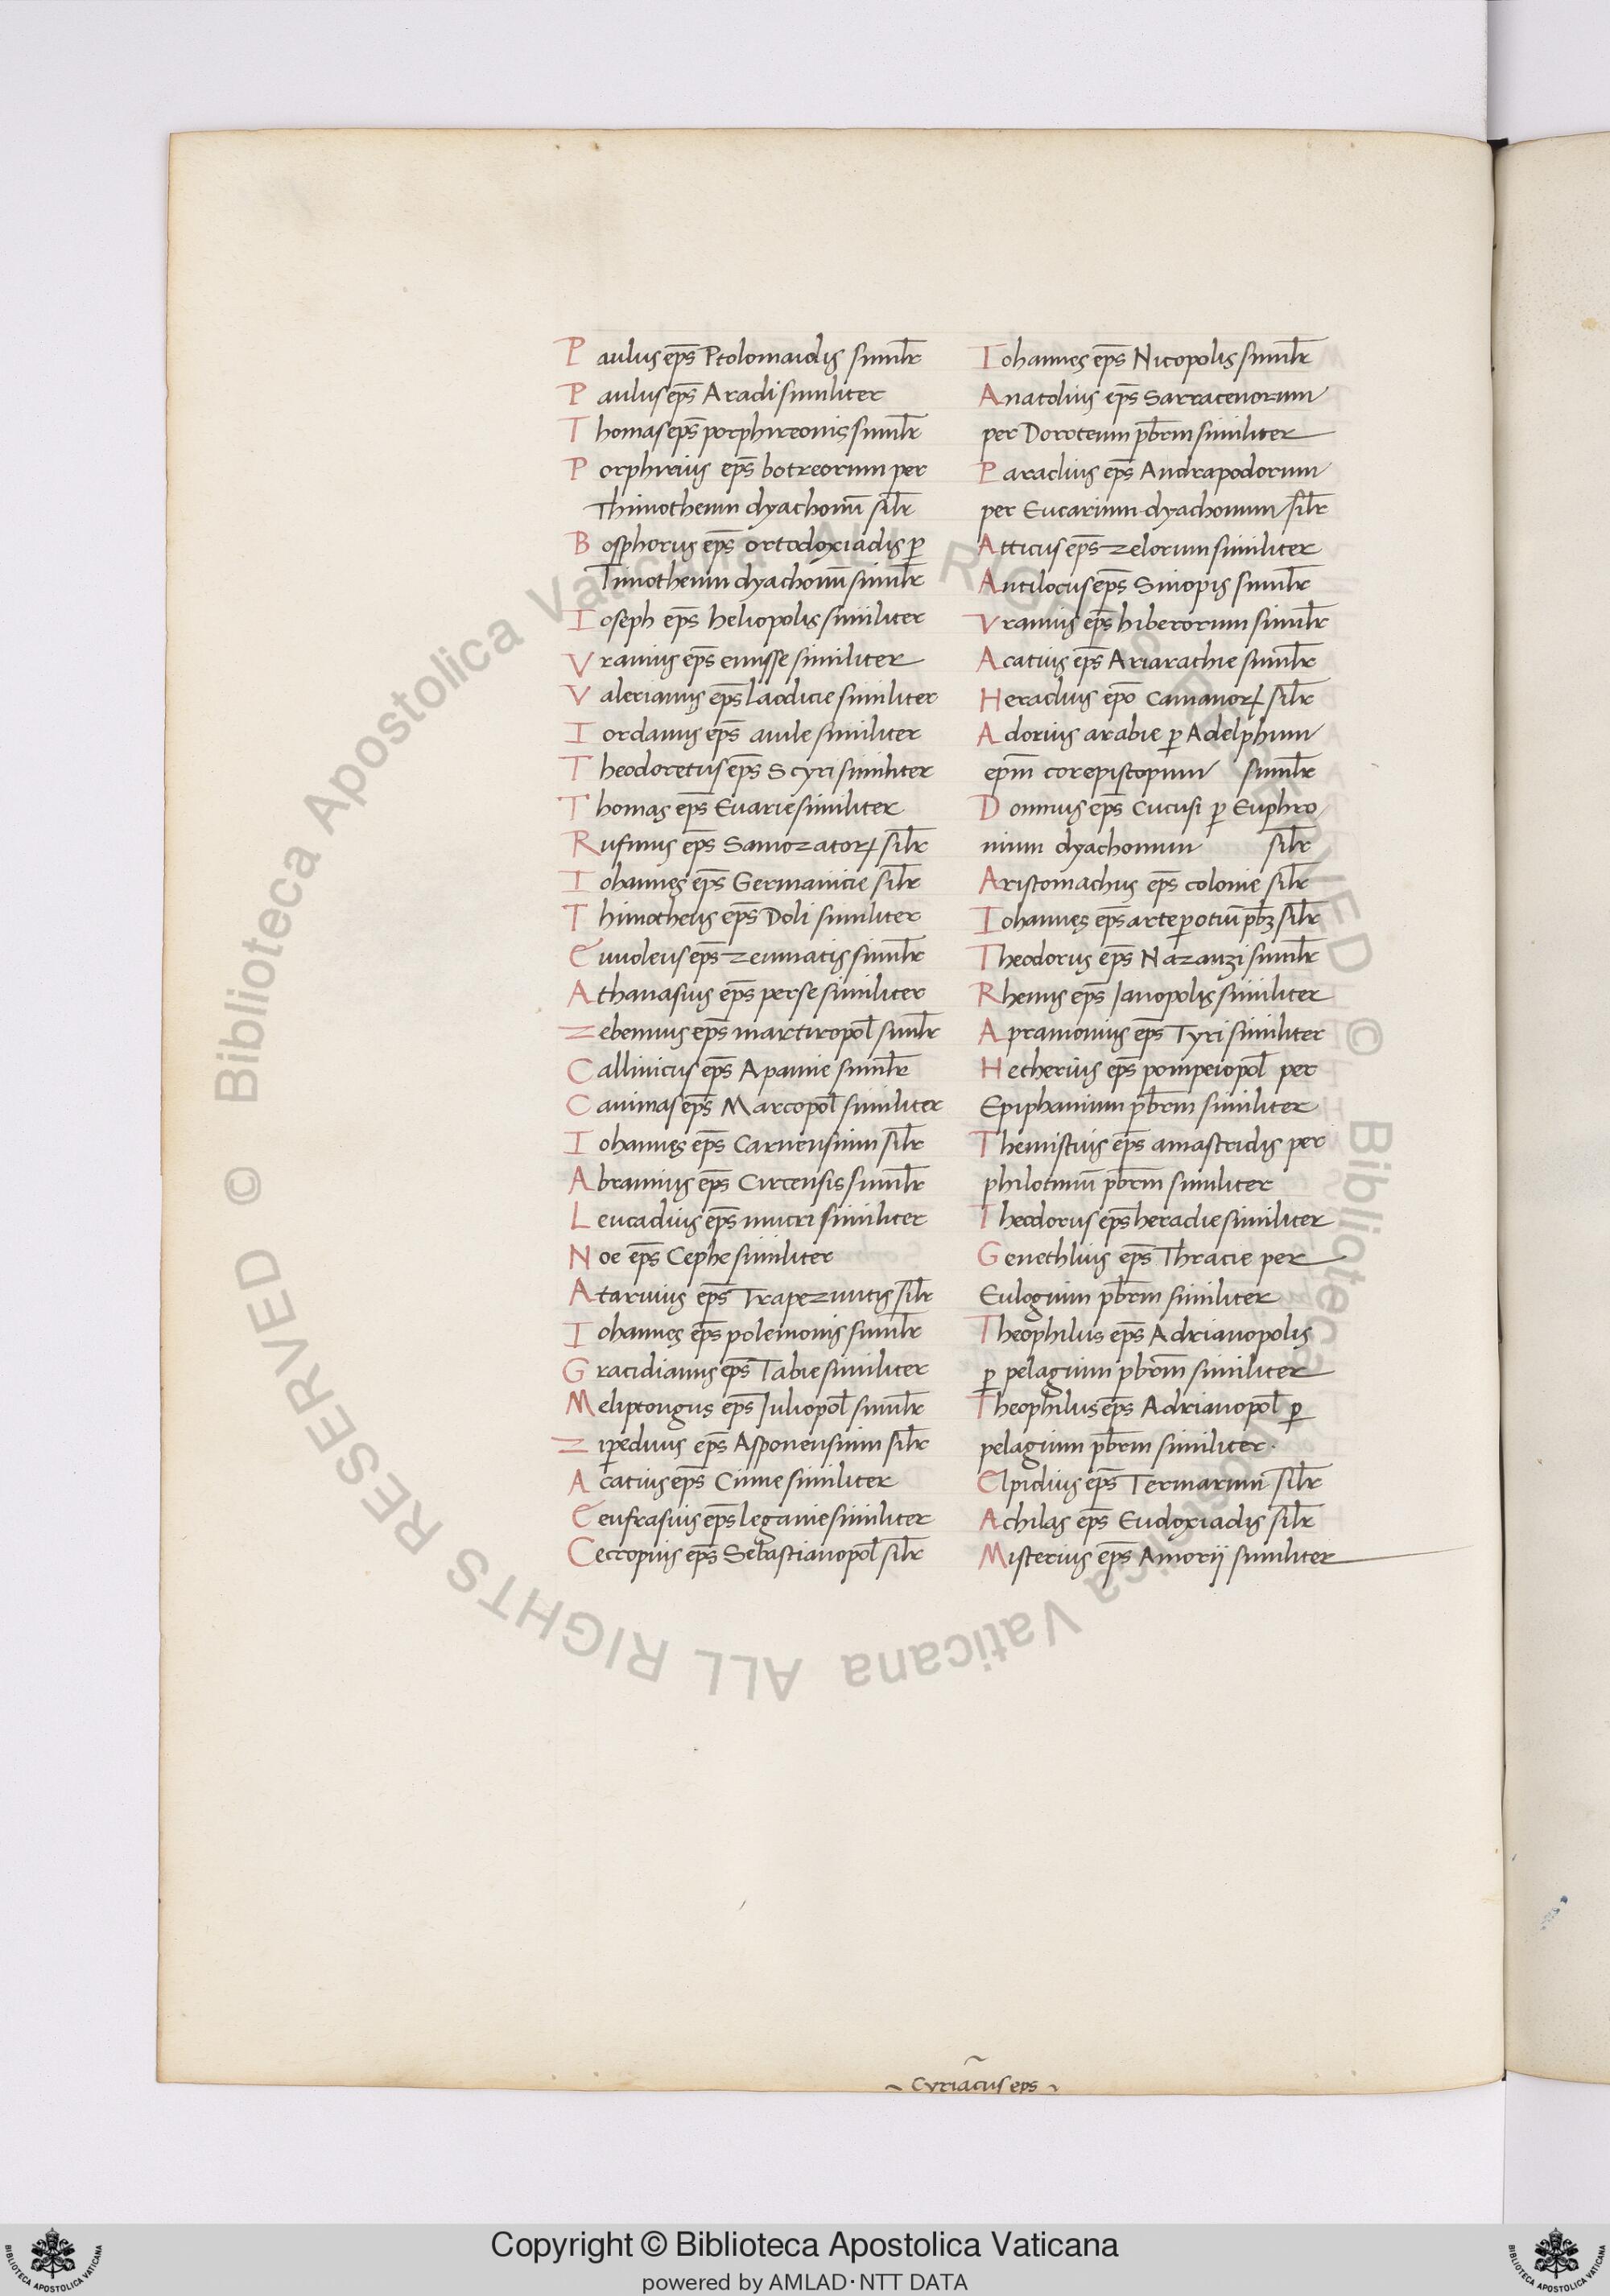 Paulus ep̄s Ptolomaidis simil̄r
Paulus ep̄s Aradi similiter
Thomas ep̄s porphireonis simil̄r
Porphirius ep̄s botreorum per
Thimotheum dyachonū sil̄r
Bosphorus ep̄s ortodoxiadis ꝑ
Timotheum dyachonū simil̄r
Ioseph ep̄s heliopolis similiter
Vranius ep̄s emisse similiter
Valerianus ep̄s laodicie similiter
Iordanus ep̄s auile similiter
Theodoretus ep̄s Scyri similiter
Thomas ep̄s Euarie similiter
Rufinus ep̄s Samozatoꝝ sil̄r
Iohannes ep̄s Germanicie sil̄r
Thimotheus ep̄s Doli similiter
Euuoleus ep̄s zeumatis simil̄r
Athanasius ep̄s perse similiter
Zebennus ep̄s martiropol̄ simil̄r
Callinicus ep̄s Apamie simil̄r
Cauimas ep̄s Marcopol̄ similiter
Iohannes ep̄s Carnensium sil̄r
Abramius ep̄s Circensis simil̄r
Leucadius ep̄s mucri similiter
Noe ep̄s Cephe similiter
Atarmius ep̄s Trapezuntis sil̄r
Iohannes ep̄s polemonis simil̄r
Gratidianus ep̄s Tabie similiter
Meliptongus ep̄s Iuliopol̄ simil̄r
Ziꝑeduus ep̄s Asponensium sil̄r
Acatius ep̄s Cinne similiter
Eeufrasius ep̄s leganie similiter
Cecropius ep̄s Sebastianopol̄ sil̄r
Iohannes ep̄s Nicopolis simil̄r
Anatolius ep̄s Sarracenorum
per Doroteum pb̄rm similiter
Paradius ep̄s Andrapodorum
per Eucarium dyachonum sil̄r
Atticus ep̄s zelorum similiter
Antilocus ep̄s Sinopis simil̄r
Vranius ep̄s hiberorum simil̄r
Acatius ep̄s Ariarathie simil̄r
Heraclius ep̄o Camanoꝝ sil̄r
Adorius arabie ꝑ Adelphum
ep̄m corepiscopum simil̄r
Domnus ep̄s Cucusi ꝑ Euphro
nium dyachonum sil̄r
Aristomachus ep̄s colonie sil̄r
Iohannes ep̄s arte ꝑ otiū pb̄ꝫ sil̄r
Theodorus ep̄s Nazanzi simil̄r
Rhenus ep̄s Ianopolis similiter
Apramonius ep̄s Tyri similiter
Hetherius ep̄s pompeiopol̄ per
Epiphanium pb̄rm similiter
Themistius ep̄s amastridis per
philotinū pb̄rm similiter
Theodorus ep̄s heraclie similiter
Genethlius ep̄s Thracie per
Eulogium pb̄rm similiter
Theophilus ep̄s Adrianopolis
ꝑ pelagium pb̄rm similiter
Theophilus ep̄s Adrianopol̄ ꝑ
pelagium pb̄rm similiter.
Elpidius ep̄s Termarum sil̄r
Achilas ep̄s Eudoxiadis sil̄r
Misterius ep̄s Amorij similiter
~ Cyriacus eps ~
© Biblioteca Apostolica Vaticana ALL RIGHTS RESERVED © Biblioteca Apostolica Vaticana ALL RIGHTS RESERVED
Copyright © Biblioteca Apostolica Vaticana
powered by AMLAD·NTT DATA
BIBLIOTECA APOSTOLICA VATICANA
BIBLIOTECA APOSTOLICA VATICANA